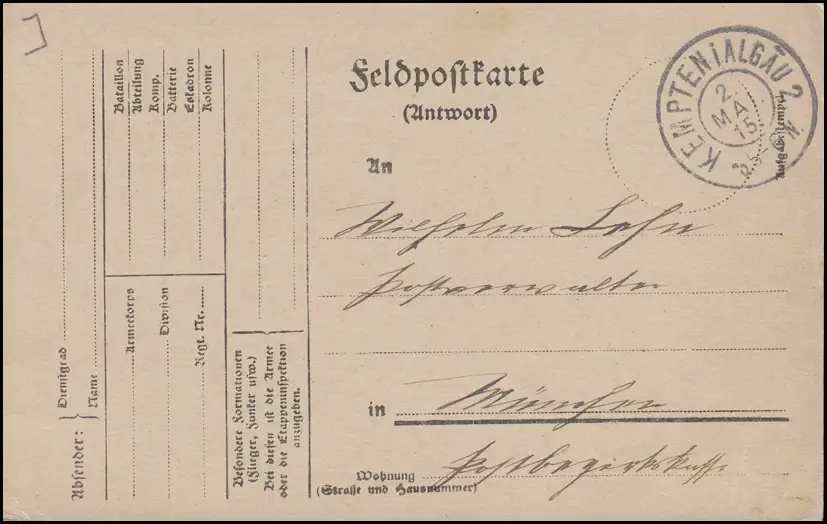 Feldpostkarte
(Antwort)
KEMPTEN i ALGÄU 2
2
MA
15
Aufgabestempel
An
Wilhelm Lehn
Postverwalter
in München
Wohnung Postbezirkskasse
(Straße und Hausnummer)
Absender:
Dienstgrad
Name
Bataillon
Abteilung
Komp.
Batterie
Eskadron
Kolonne
Armeekorps
Division
Regt. Nr.
Besondere Formationen
(Flieger, Funker usw.)
Bei diesen ist die Armee
oder die Etappeninspektion
anzugeben.